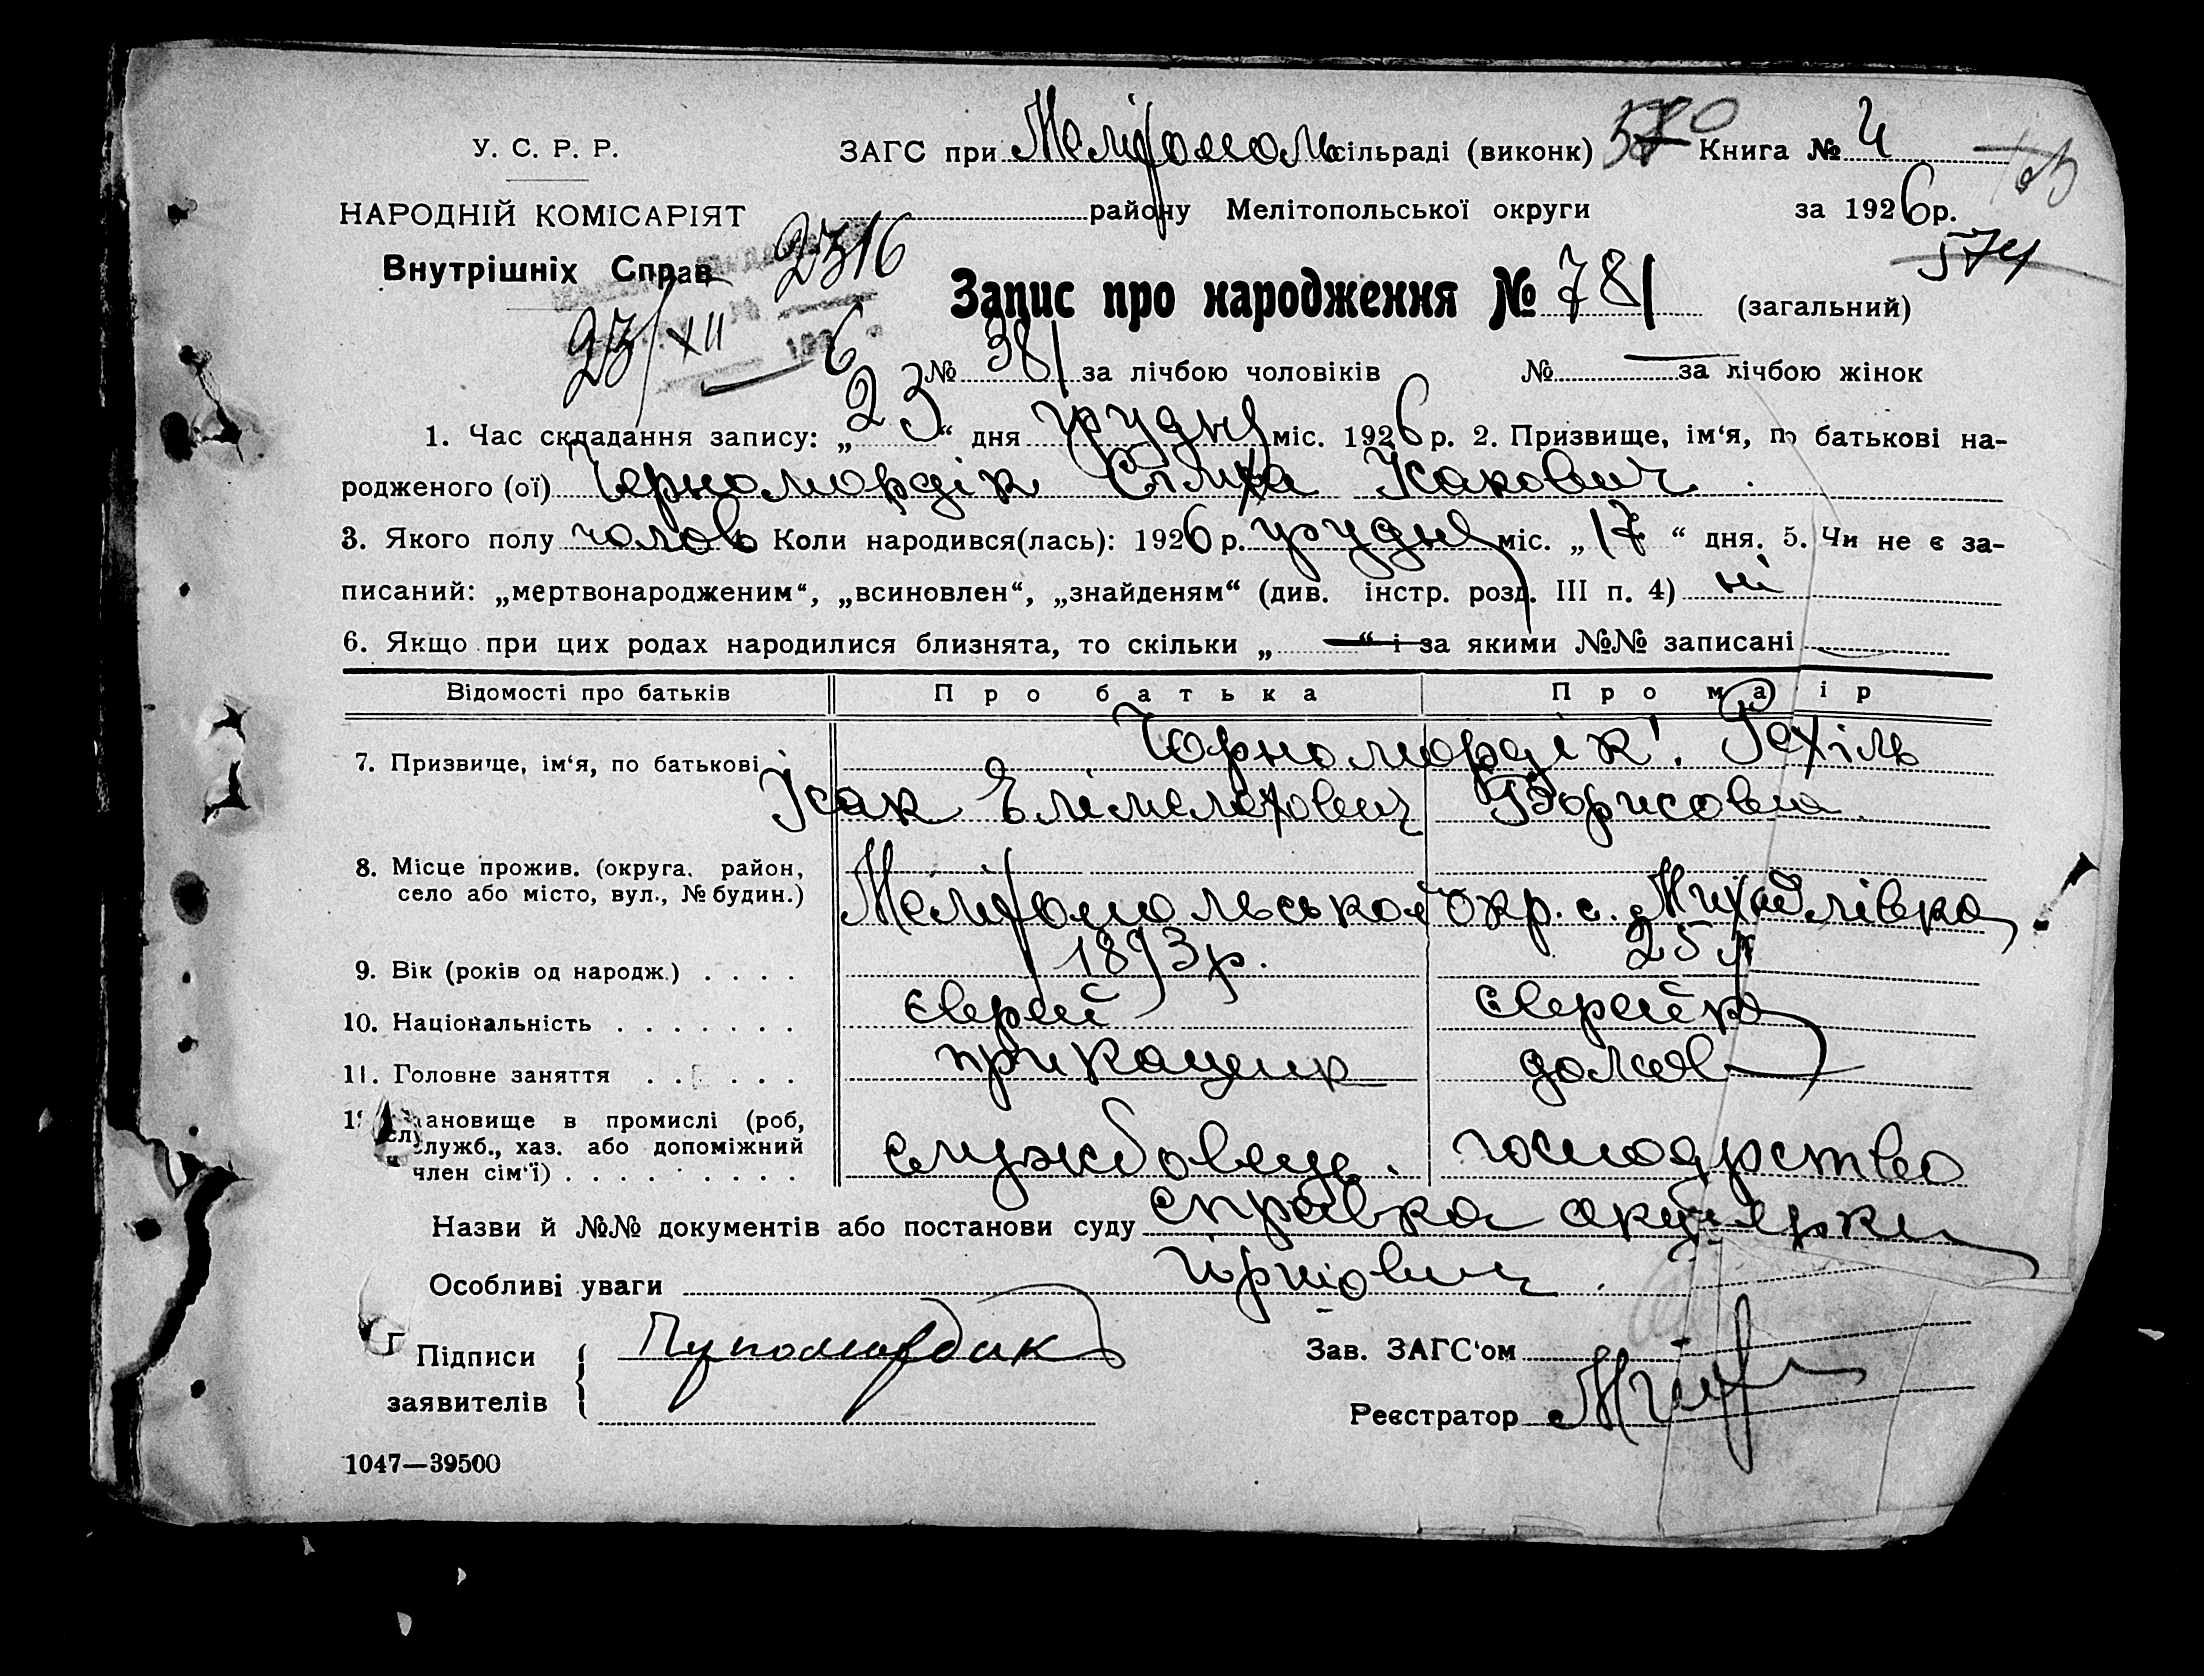 У. С. Р. Р.
ЗАГС при Мелітополь сільраді (виконк) 570 Книга № 4
НАРОДНІЙ КОМІСАРІЯТ
району Мелітопольської округи за 1926 р.
Внутрішніх Справ 2316 574
23/XII 6
Запис про народження № 781 (загальний)
№ 381 за лічбою чоловіків № — за лічбою жінок
1. Час складання запису: „23“ дня грудня міс. 1926 р. 2. Призвище, ім‘я, по батькові на-
родженого (ої) Черномордік Сімха Ісакович
3. Якого полу чолов Коли народився(лась): 1926 р. грудня міс. „17“ дня. 5. Чи не є за-
писаний: „мертвонародженим“, „всиновлен“, „знайденям“ (див. інстр. розд. III п. 4) ні
6. Якщо при цих родах народилися близнята, то скільки „ —“ і за якими №№ записані
Відомості про батьків Про батька Про матір
7. Призвище, ім‘я, по батькові Чорномордік Рехіль
Ісак Елімелехович Борисовна
8. Місце прожив. (округа, район,
село або місто, вул., № будин.) Мелітопольської окр. с. Михайлівка
9. Вік (років од народж.) . . . . 1893 р. 25 л
10. Національність . . . . . . . єврей єврейка
11. Головне заняття . . . . . . прикащик домов
12. Становище в промислі (роб,
служб., хаз. або допоміжний
член сім‘ї) . . . . . . . . службовець. господарство
Назви й №№ документів або постанови суду справка акушерки
Особливі уваги
Підписи
заявителів
Зав. ЗАГС‘ом
Реєстратор
1047—39500